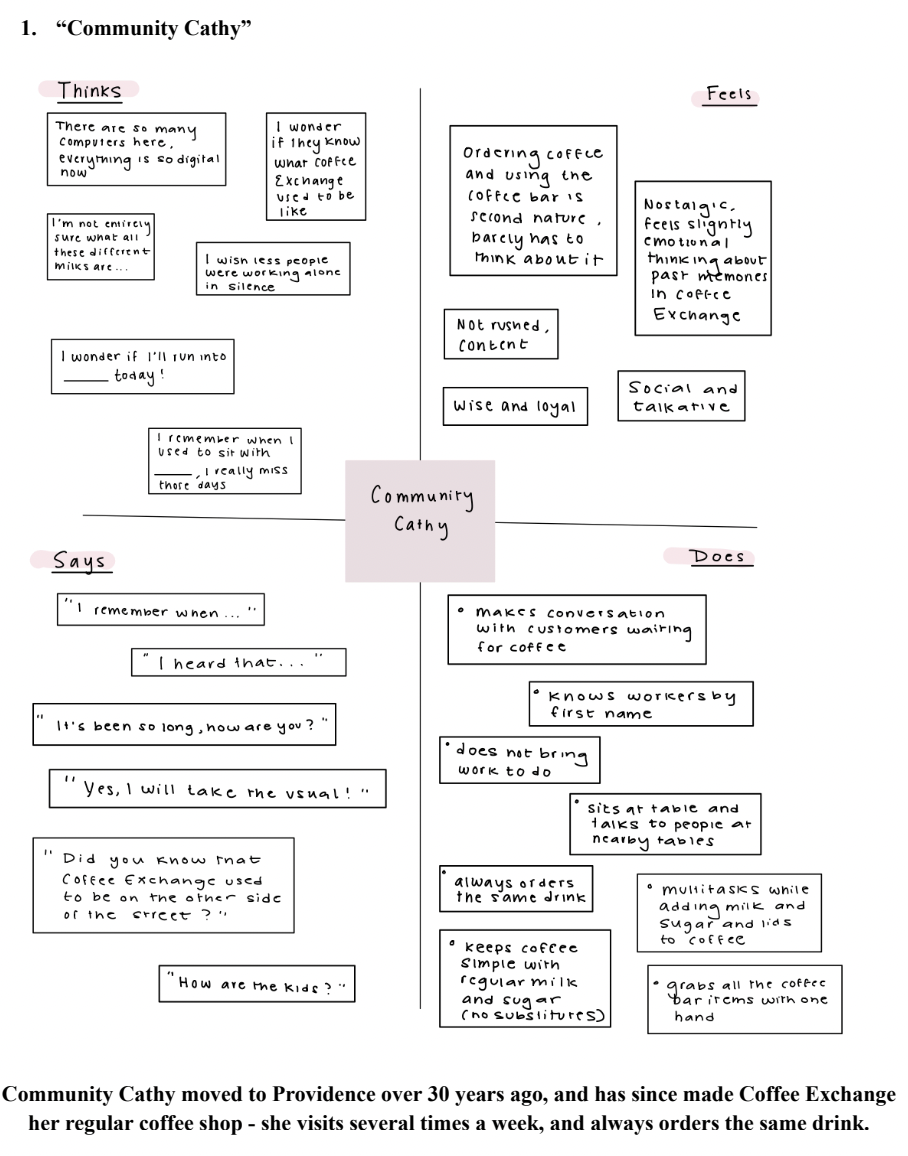 1. “Community Cathy”
Thinks
There are so many
computers here,
everything is so digital
now
I wonder
if they know
what coffee
Exchange
used to be
like
I'm not entirely
sure what all
these different
milks are...
I wish less people
were working alone
in silence
I wonder if I'll run into
_____ today!
I remember when I
used to sit with
_____, I really miss
those days
Feels
Ordering coffee
and using the
coffee bar is
second nature,
barely has to
think about it
Nostalgic,
feels slightly
emotional
thinking about
past memories
in coffee
Exchange
Not rushed,
content
Wise and loyal
Social and
talkative
Community
Cathy
Says
"I remember when..."
"I heard that..."
"It's been so long, how are you?"
"Yes, I will take the usual!"
"Did you know that
Coffee Exchange used
to be on the other side
of the street?"
"How are the kids?"
Does
• makes conversation
with customers waiting
for coffee
• knows workers by
first name
• does not bring
work to do
• sits at table and
talks to people at
nearby tables
• always orders
the same drink
• multitasks while
adding milk and
sugar and lids
to coffee
• keeps coffee
simple with
regular milk
and sugar
(no substitutes)
• grabs all the coffee
bar items with one
hand
Community Cathy moved to Providence over 30 years ago, and has since made Coffee Exchange
her regular coffee shop - she visits several times a week, and always orders the same drink.